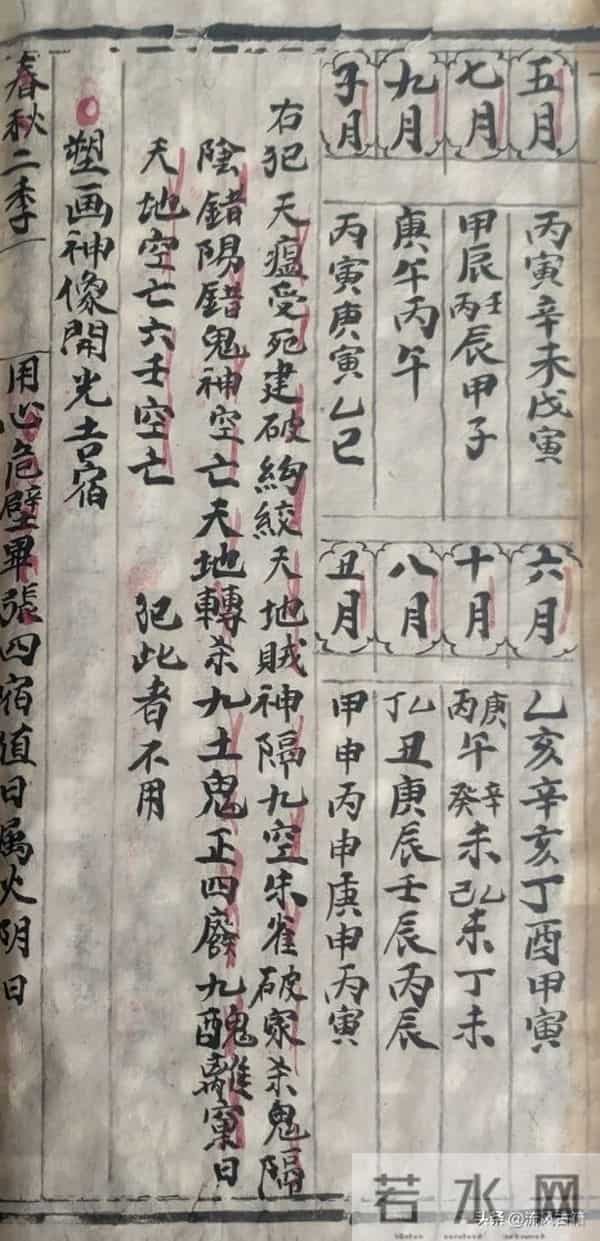 五月
丙寅辛未戊寅
六月
乙亥辛亥丁酉甲寅
七月
甲辰壬丙辰甲子
十月
庚丙午辛癸未乙己未丁未
九月
庚午丙午
八月
乙丁丑庚辰壬辰丙辰
子月
丙寅庚寅乙巳
丑月
甲申丙申庚申丙寅
右犯天瘟受死建破絢絞天地賊神隔九空朱雀破家杀鬼隔
陰錯陽錯鬼神空亡天地轉杀九土鬼正四廢九醜離窠日
天地空亡六壬空亡 犯此者不用
塑画神像開光吉宿
春秋二季
用心危壁畢張四宿值日属火阴日
若水网
头条@